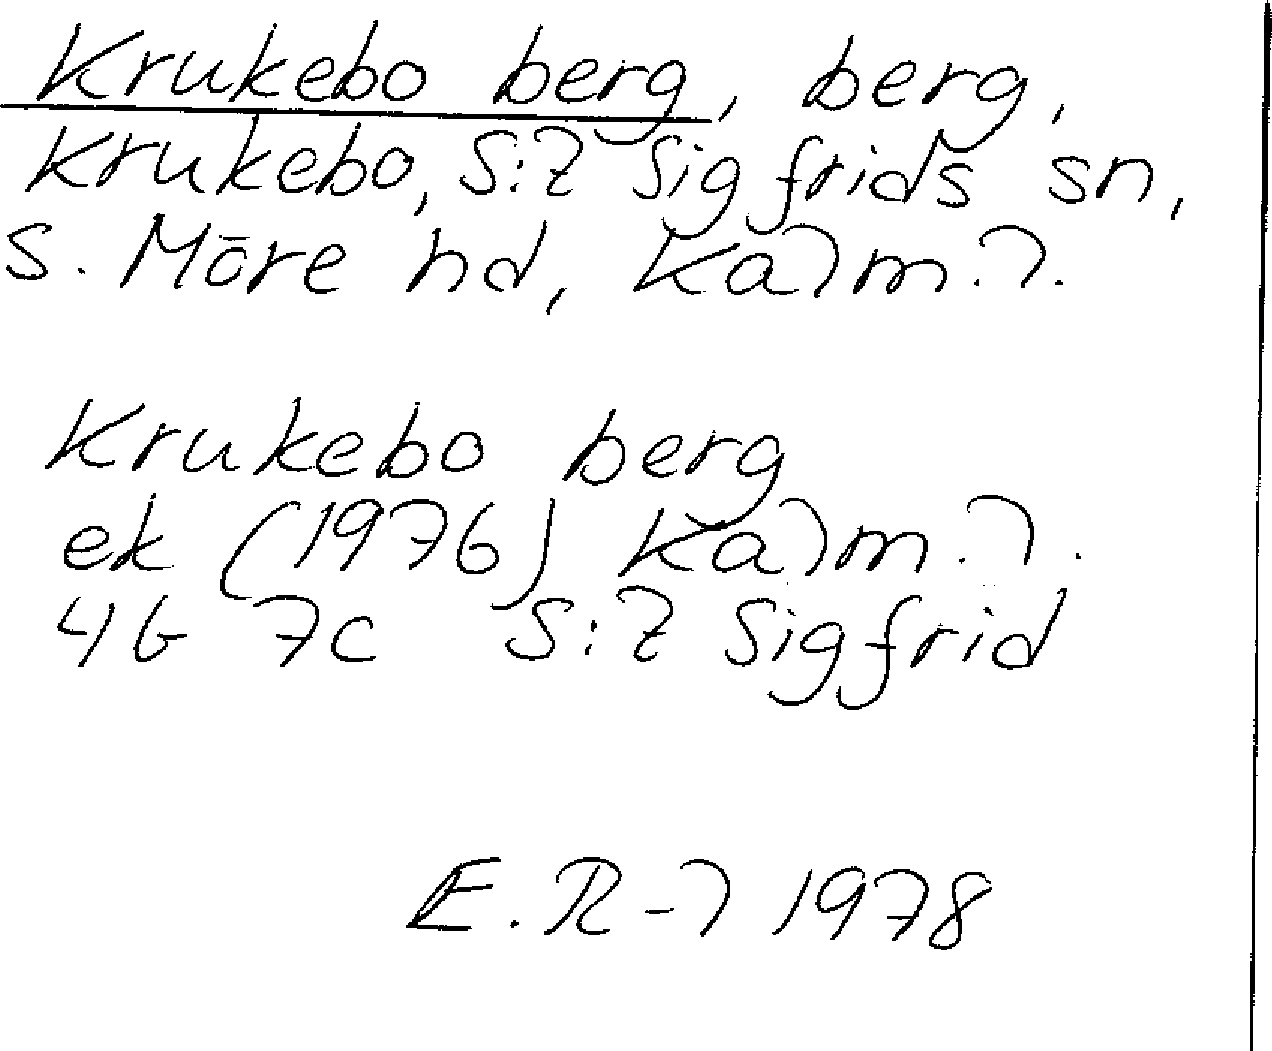 Krukebo berg, berg,
Krukebo, S:t Sigfrids sn,
S. Möre hd, Kalm. l.
Krukebo berg
ek (1976) Kalm. l.
4G 7c S:t Sigfrid
E. R-l 1978